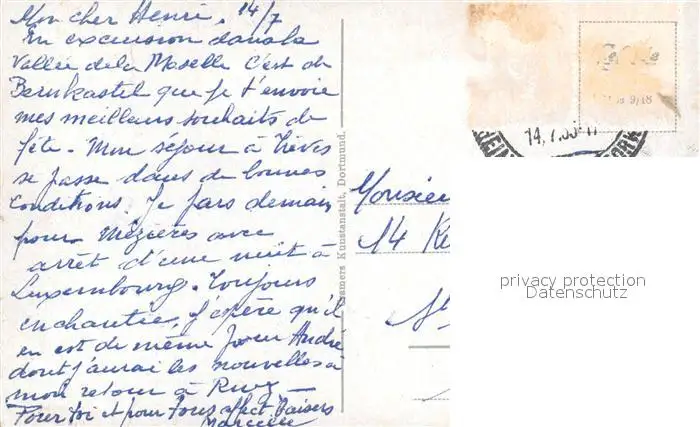 Mon cher Henri. 14/7
En excursion dans la
Vallée de la Moselle c'est de
Bernkastel que je t'envoie
mes meilleurs souhaits de
fête. Mon séjour à Trèves
se passe dans de bonnes
conditions. Je pars demain
pour Mézières avec
arrêt d'une nuit à
Luxembourg. Toujours
enchantée, j'espère qu'il
en est de même pour André
dont j'aurai les nouvelles à
mon retour à
Pour toi et pour tous affect. baisers
Kunstanstalt, Dortmund.
14.7.
Monsieu
14 Ke
privacy protection
Datenschutz